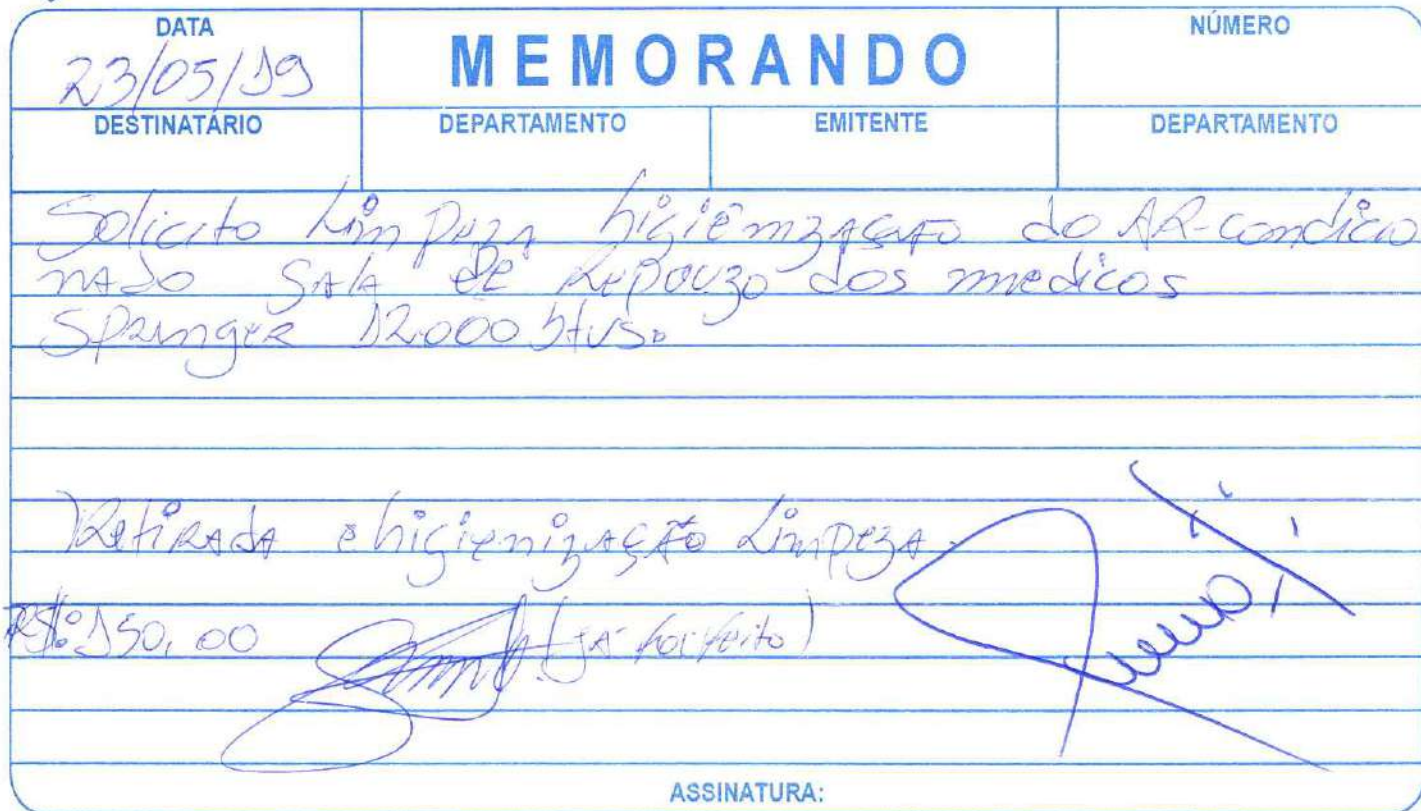 DATA
MEMORANDO
NÚMERO
23/05/19
DESTINATÁRIO DEPARTAMENTO EMITENTE DEPARTAMENTO
Solicito Limpeza higiênização do AR-condicio
nado Sala de Repouzo dos medicos
Springer 12.000 btus.
Retirada e higienização Limpeza.
R$: 150,00 (já foi feito)
ASSINATURA: